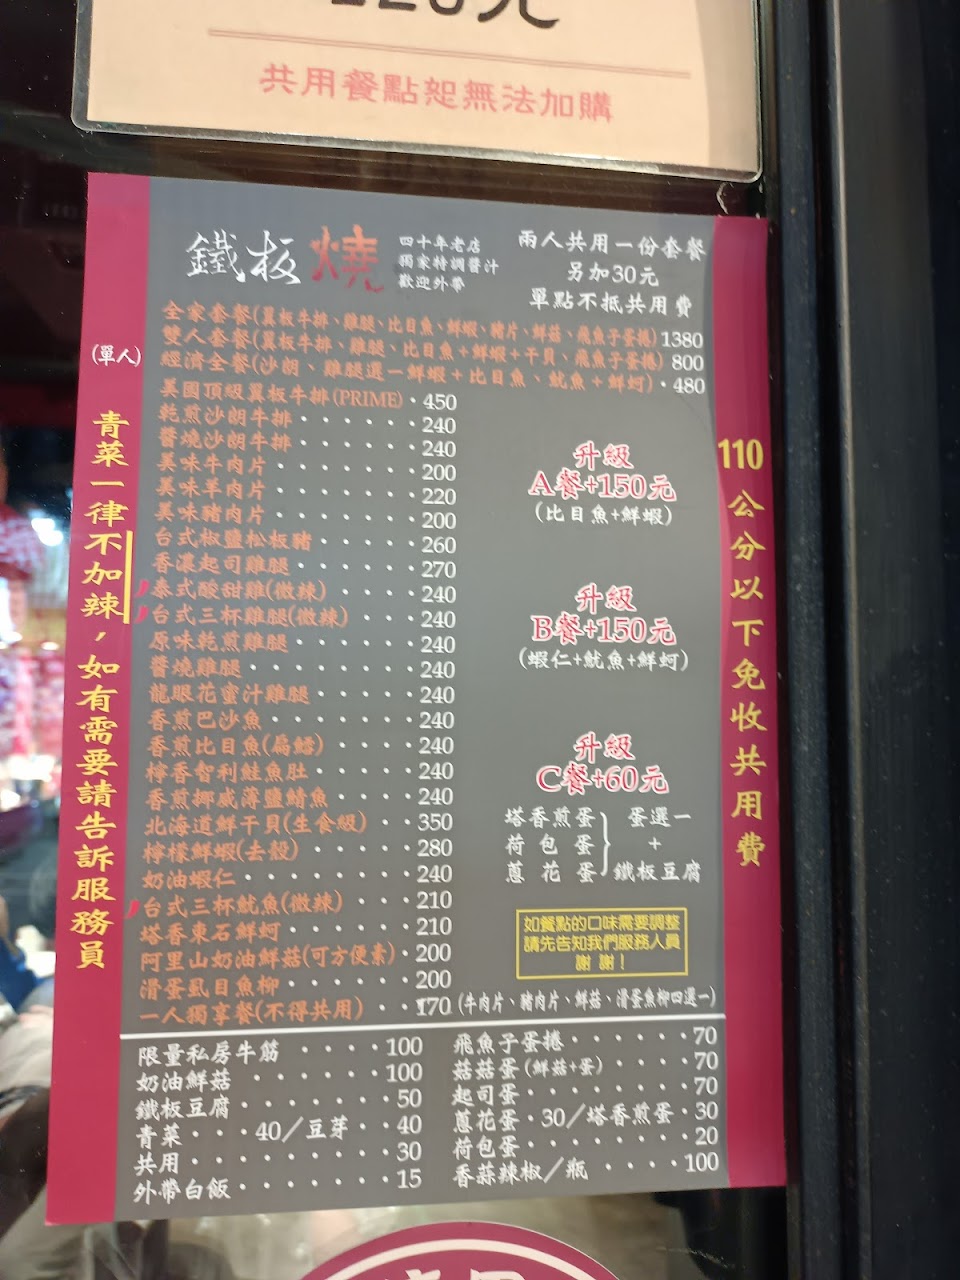 共用餐點恕無法加購
鐵板燒
四十年老店
獨家特調醬汁
歡迎外帶
兩人共用一份套餐
另加30元
單點不抵共用費
(單人)
全家套餐(翼板牛排、雞腿、比目魚、鮮蝦、豬片、鮮菇、飛魚子蛋捲)1380
雙人套餐(翼板牛排、雞腿、比目魚+鮮蝦+干貝、飛魚子蛋捲) 800
經濟全餐(沙朗、雞腿選一鮮蝦+比目魚、魷魚+鮮蚵)·480
美國頂級翼板牛排(PRIME)·450
乾煎沙朗牛排······240
醬燒沙朗牛排······240
美味牛肉片·······200
美味羊肉片·······220
美味豬肉片·······200
台式椒鹽松板豬·····260
香濃起司雞腿······270
泰式酸甜雞(微辣)····240
台式三杯雞腿(微辣)···240
原味乾煎雞腿······240
醬燒雞腿········240
龍眼花蜜汁雞腿·····240
香煎巴沙魚·······240
香煎比目魚(扁鱈)····240
檸香智利鮭魚肚·····240
香煎挪威薄鹽鯖魚····240
北海道鮮干貝(生食級)··350
檸檬鮮蝦(去殼)·····280
奶油蝦仁········240
台式三杯魷魚(微辣)···210
塔香東石鮮蚵······210
阿里山奶油鮮菇(可方便素)·200
滑蛋虱目魚柳······200
一人獨享餐(不得共用)··170(牛肉片、豬肉片、鮮菇、滑蛋魚柳四選一)
升級
A餐+150元
(比目魚+鮮蝦)
升級
B餐+150元
(蝦仁+魷魚+鮮蚵)
升級
C餐+60元
塔香煎蛋 蛋選一
荷包蛋 +
蔥花蛋 鐵板豆腐
如餐點的口味需要調整
請先告知我們服務人員
謝謝！
限量私房牛筋····100
奶油鮮菇······100
鐵板豆腐·······50
青菜···40／豆芽··40
共用·········30
外帶白飯·······15
飛魚子蛋捲······70
菇菇蛋(鮮菇+蛋)····70
起司蛋········70
蔥花蛋·30／塔香煎蛋·30
荷包蛋········20
香蒜辣椒／瓶····100
青菜一律不加辣，如有需要請告訴服務員
110公分以下免收共用費